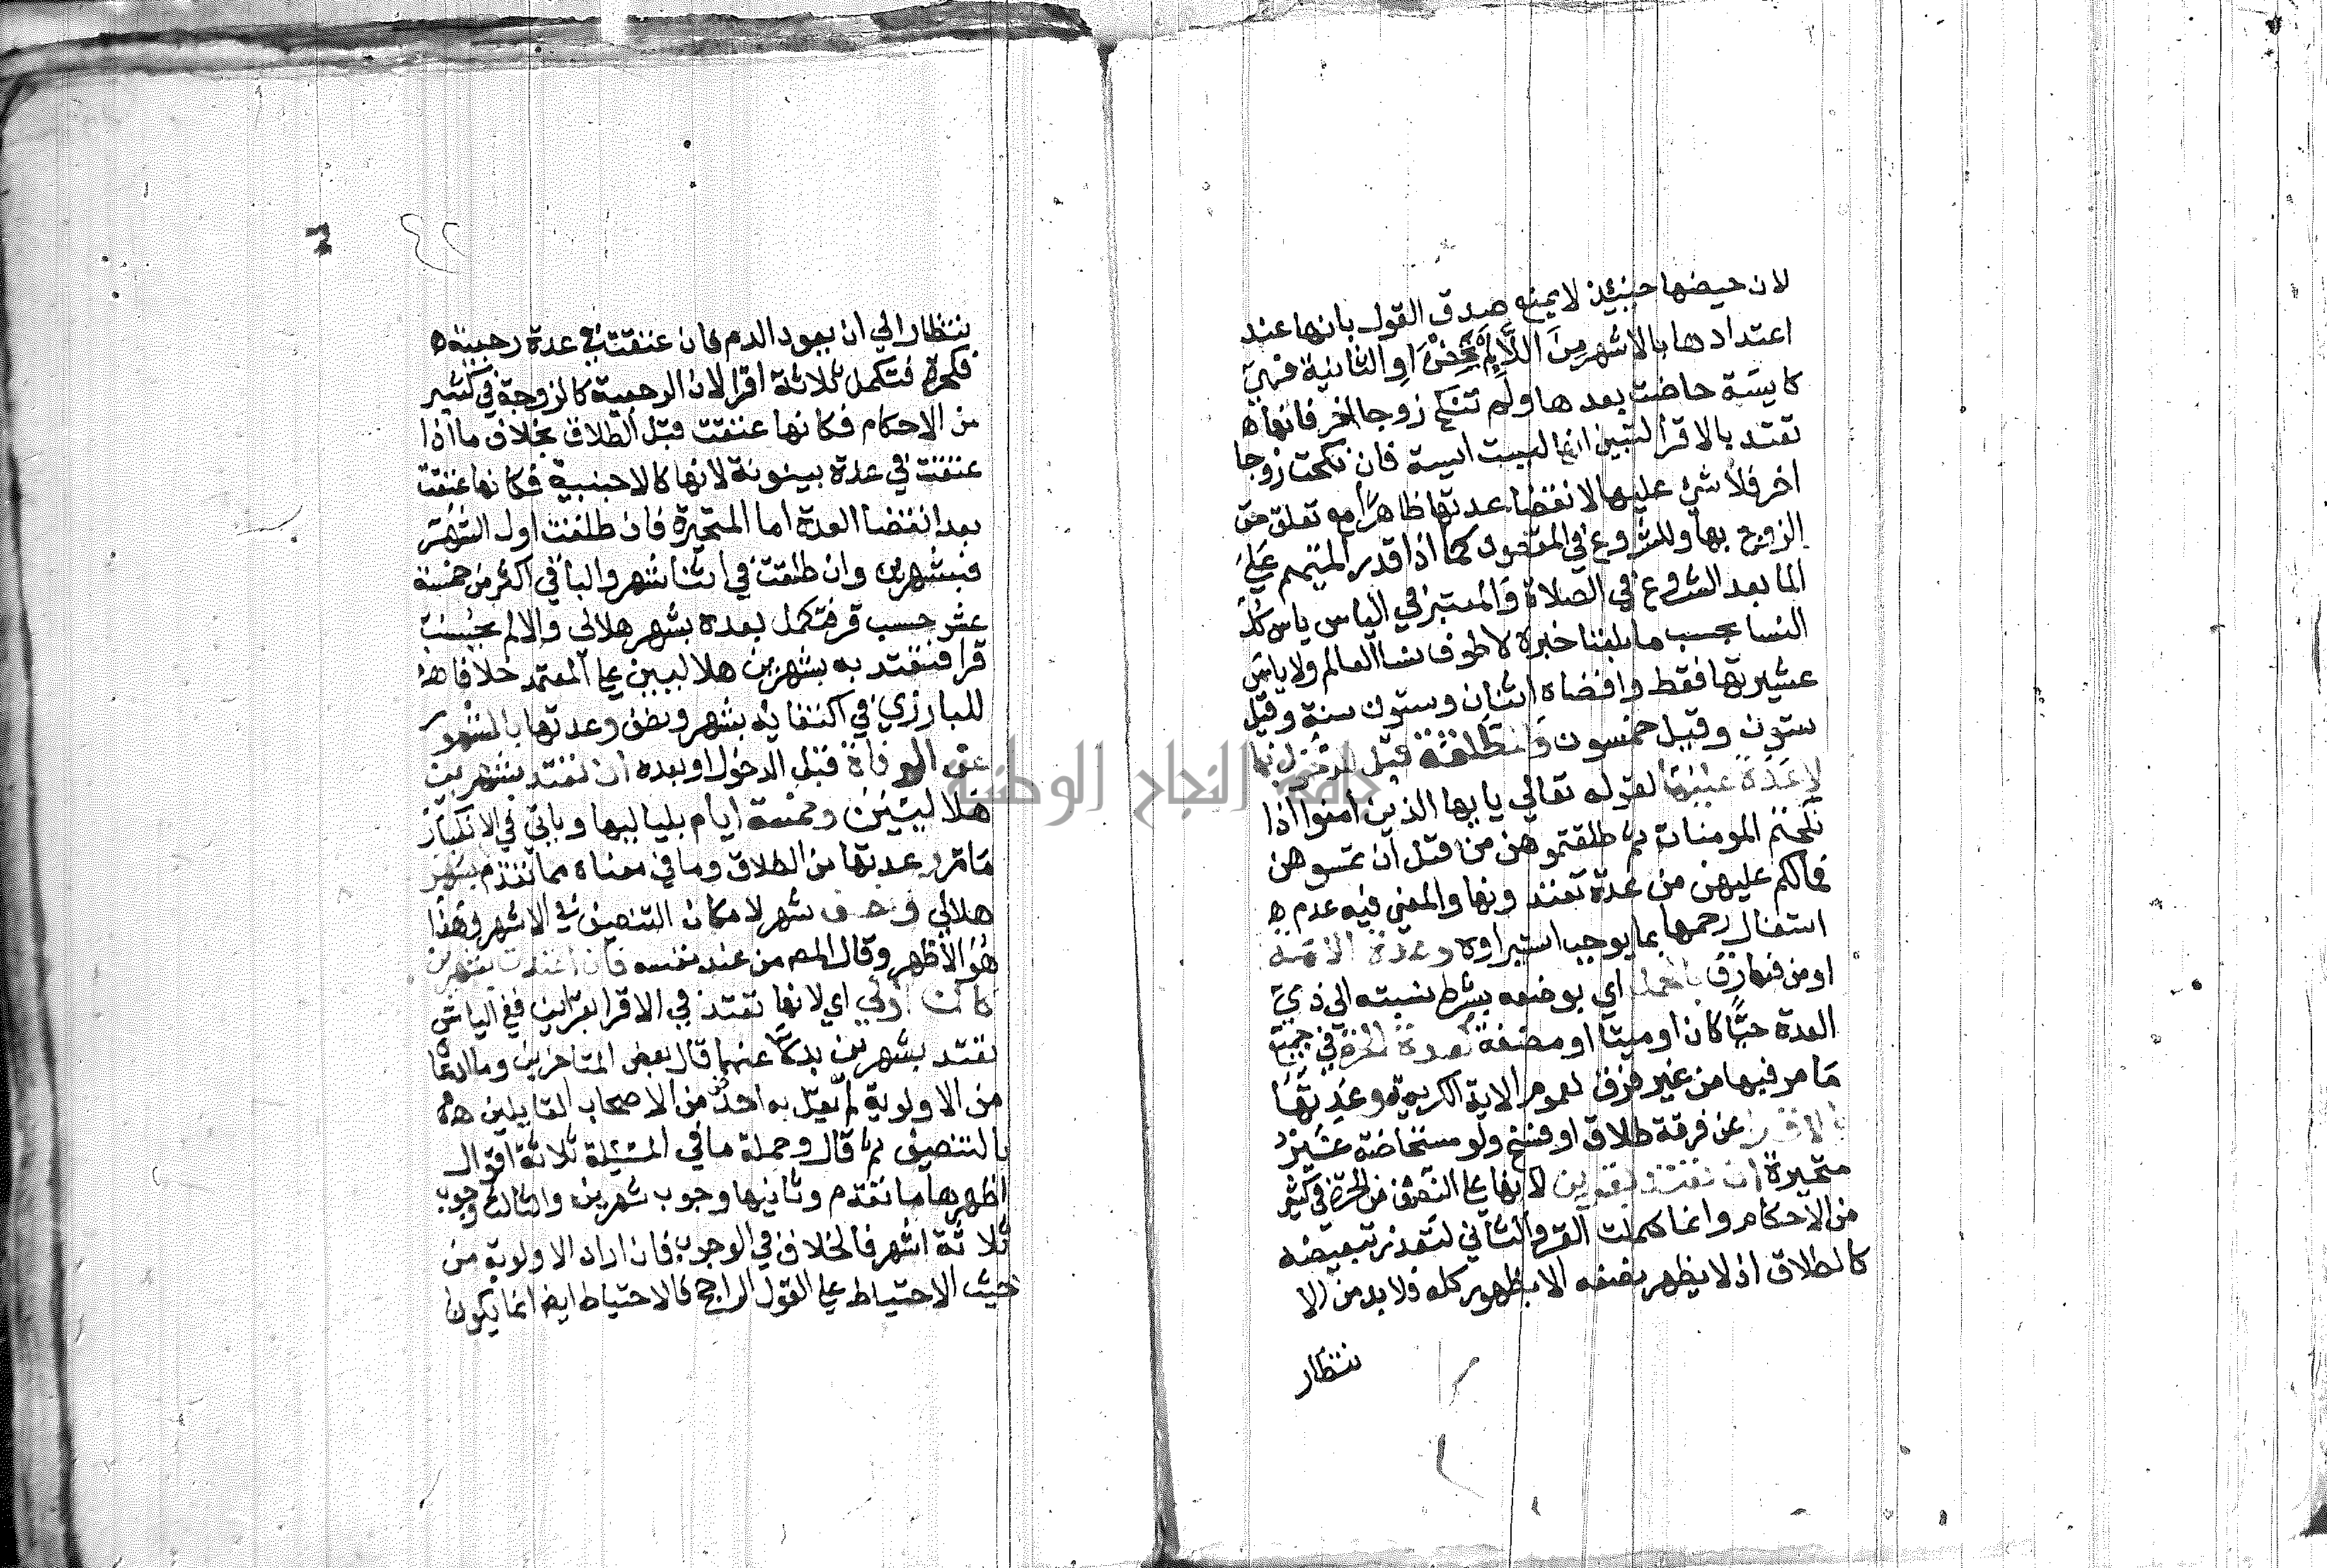 لان حيضها حينئذ لا يمنع صدق القول بانها عند
اعتدادها بالاشهر مِنَ اللَّايِ لَمْ يَحِضْنَ او الثانية فهي
كايسة حاضت بعدها ولم تنكح زوجا اخر فانها ه
تعتد بالاقرا لتبين انها ليست ايسة فان نكحت زوجا
اخر فلا شي عليها لانقضا عدتها ظاهرا مع تعلق حق
الزوج بها وللشروع في المقصود كما اذا قدر المتيمم علي
الما بعد الشروع في الصلاة والمعتبر في الياس ياس كل
النسا بحسب ما بلغنا خبره لا طوف نسا العالم ولا ياس
عشيرتها فقط واقصاه اثنان وستون سنة وقيل
ستون وقيل خمسون والمطلقة قبل الدخول بها
لا عدة عليها لقوله تعالي يا يها الذين امنوا اذا
نكحتم المومنات ثم طلقتموهن من قبل ان تمسوهن
فمالكم عليهن من عدة تعتدونها والمعني فيه عدم ه
اشتغال رحمها بما يوجب استبراوه وعدة الامة
او من فيها رق بالحمل اي بوضعه بشرط نسبته الي ذي
العدة حيّا كان او ميتا او مضغة كعدة الحرة في جميع
ما مر فيها من غير فرق لعموم الاية الكريمة وعدتها
بالاقرا عن فرقة طلاق او فسخ ولو مستحاضة غير
متحيرة ان تعتد بقرين لانها علي النصف من الحرة في كثير
من الاحكام وانما كملت القرء الثاني لتعذر تبعيضه
كالطلاق اذ لا يظهر نصفه الا بظهور كله فلا بد من الا
نتظار
٤٢
نتظار الي ان يعود الدم فان عتقت في عدة رجعية ه
فكحرة فتكمل ثلاثة اقرا لان الرجعية كالزوجة في كثير
من الاحكام فكانها عتقت قبل الطلاق بخلاف ما اذا
عتقت في عدة بينونة لانها كالاجنبية فكانها عتقت
بعد انقضا العدة اما المتحيرة فان طلقت اول الشهر
فبشهرين وان طلقت في اثنا شهر والباقي اكثر من خمسة
عشر حسب قرء فتكمل بعده بشهر هلالي والا لم يحسب
قرا فتعتد به بشهرين هلاليين علي المعتمد خلافا ه
للبارزي في اكتفايه بشهر ونصف وعدتها بالشهور
عن الوفاة قبل الدخول او بعده ان تعتد بشهرين
هلاليين وخمسة ايام بلياليها وياتي في الانكسار
ما مر وعدتها من الطلاق وما في معناه مما تقدم بشهر
هلالي ونصف شهر لامكان التنصيف في الاشهر وهذا
هو الاظهر وقال المص من عند نفسه فان اعتدت بشهرين
كان اولي اي لانها تعتد في الاقرا بقراين ففي الياس
تعتد بشهرين بدلا عنهما قال بعض المتاخرين وما ادعا
من الاولوية لم يقل به احد من الاصحاب القايلين ه
بالتنصيف ثم قال وجملة ما في المسيلة ثلاثة اقوال
اظهرها ما تقدم وثانيها وجوب شهرين والثالث وجوب
ثلاثة اشهر فالخلاف في الوجوب فان اراد الاولوية من
حيث الاحتياط علي القول الراجح فالاحتياط ايض انما يكون
جامعة النجاح الوطنية